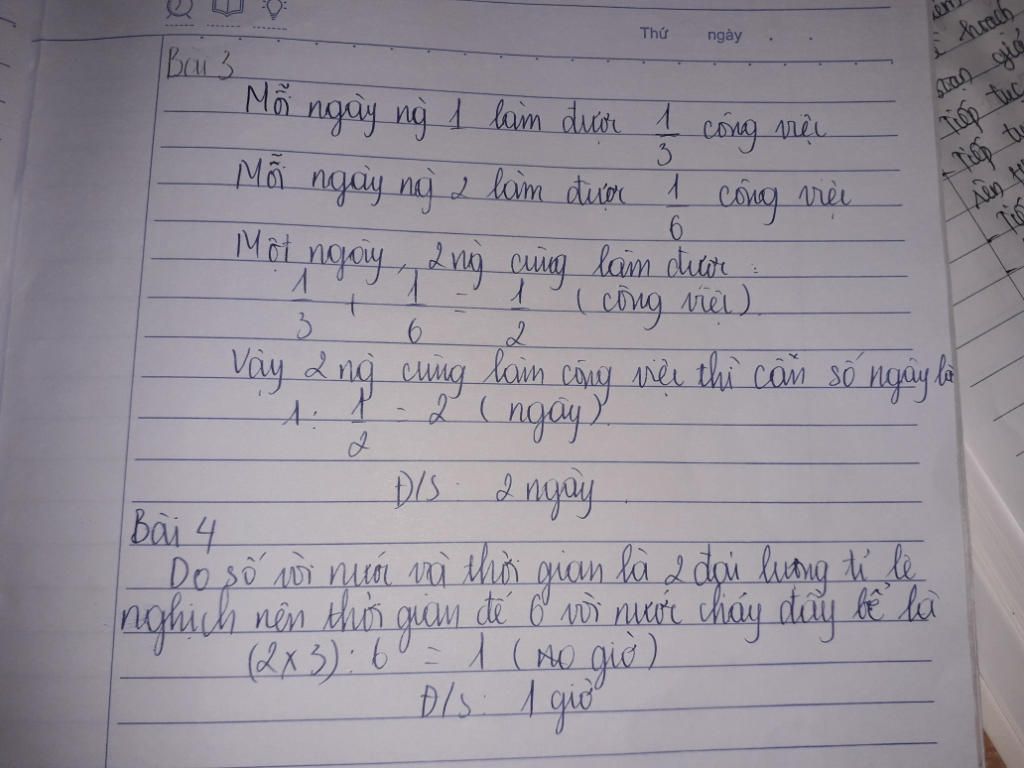 Thứ ngày . .
Bài 3
Mỗi ngày ng` 1 làm được 1/3 công việc
Mỗi ngày ng` 2 làm được 1/6 công việc
Một ngày, 2 ng` cùng làm được :
1/3 + 1/6 = 1/2 (công việc)
Vậy 2 ng` cùng làm công việc thì cần số ngày là
1 : 1/2 = 2 (ngày)
Đ/S : 2 ngày
Bài 4
Do số vòi nước và thời gian là 2 đại lượng tỉ lệ
nghịch nên thời gian để 6 vòi nước chảy đầy bể là
(2 x 3) : 6 = 1 (giờ)
Đ/S : 1 giờ
hoạch
Tiếp tục
Tiếp